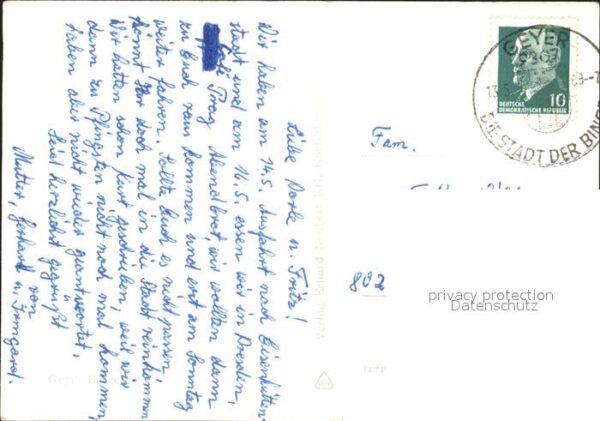 Liebe Dorle u. Fritz!
Wir haben am 14.5. Ausfahrt nach Eisenhütten-
stadt und am 16.5. essen wir in Dresden,
Prag Abendbrot, wir wollten dann
zu Euch ran kommen und erst am Sonntag
weiter fahren. Sollte Euch es nicht passen,
könnt Ihr doch mal in die Stadt reinkommen
Wir hatten schon kurz geschrieben, weil wir
dann zu Pfingsten nicht noch mal kommen,
haben aber nicht wieder geantwortet.
Seid herzlichst gegrüßt
von
Mutter, Gerhard
u. Irmgard.
GEYER
DIE STADT DER BIN
DEUTSCHE
DEMOKRATISCHE REPUBLIK
10
Fam.
802
privacy protection
Datenschutz
Geyer